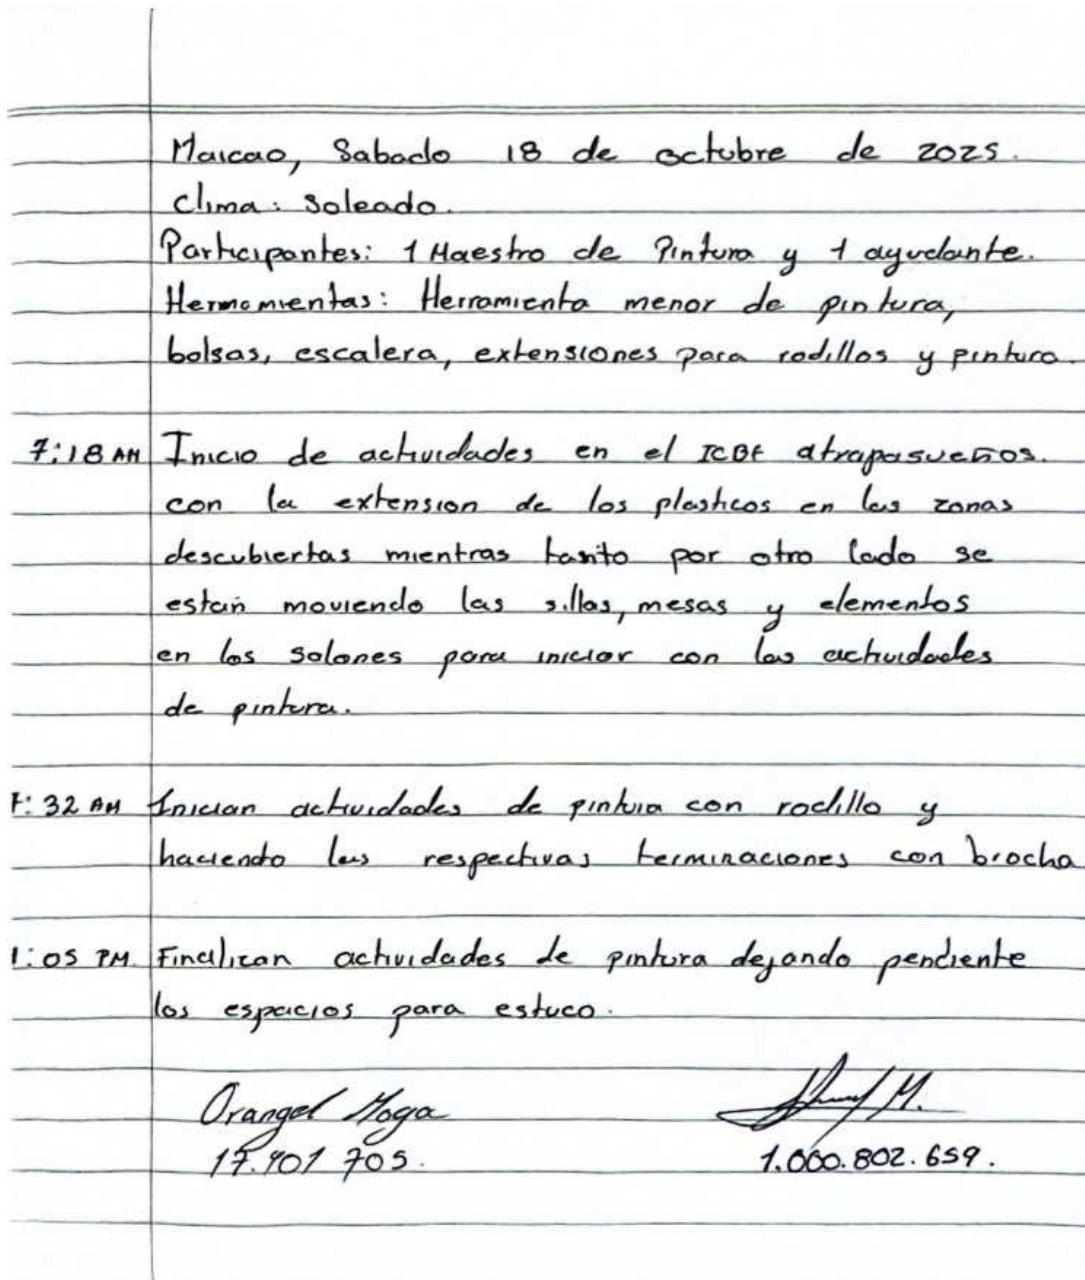 Maicao, Sabado 18 de octubre de 2025.
Clima: Soleado.
Participantes: 1 Maestro de Pintura y 1 ayudante.
Hermamientas: Herramienta menor de pintura,
bolsas, escalera, extensiones para rodillos y pintura.
7:18 AM Inicio de actividades en el ICBF atrapasueños.
con la extension de los plasticos en las zonas
descubiertas mientras tanto por otro lado se
estan moviendo las sillas, mesas y elementos
en los salones para iniciar con las actividades
de pintura.
7:32 AM Inician actividades de pintura con rodillo y
haciendo las respectivas terminaciones con brocha.
1:05 PM. Finalizan actividades de pintura dejando pendiente
los espacios para estuco.
Orangel Moya M.
17.401 705. 1.000.802.659.